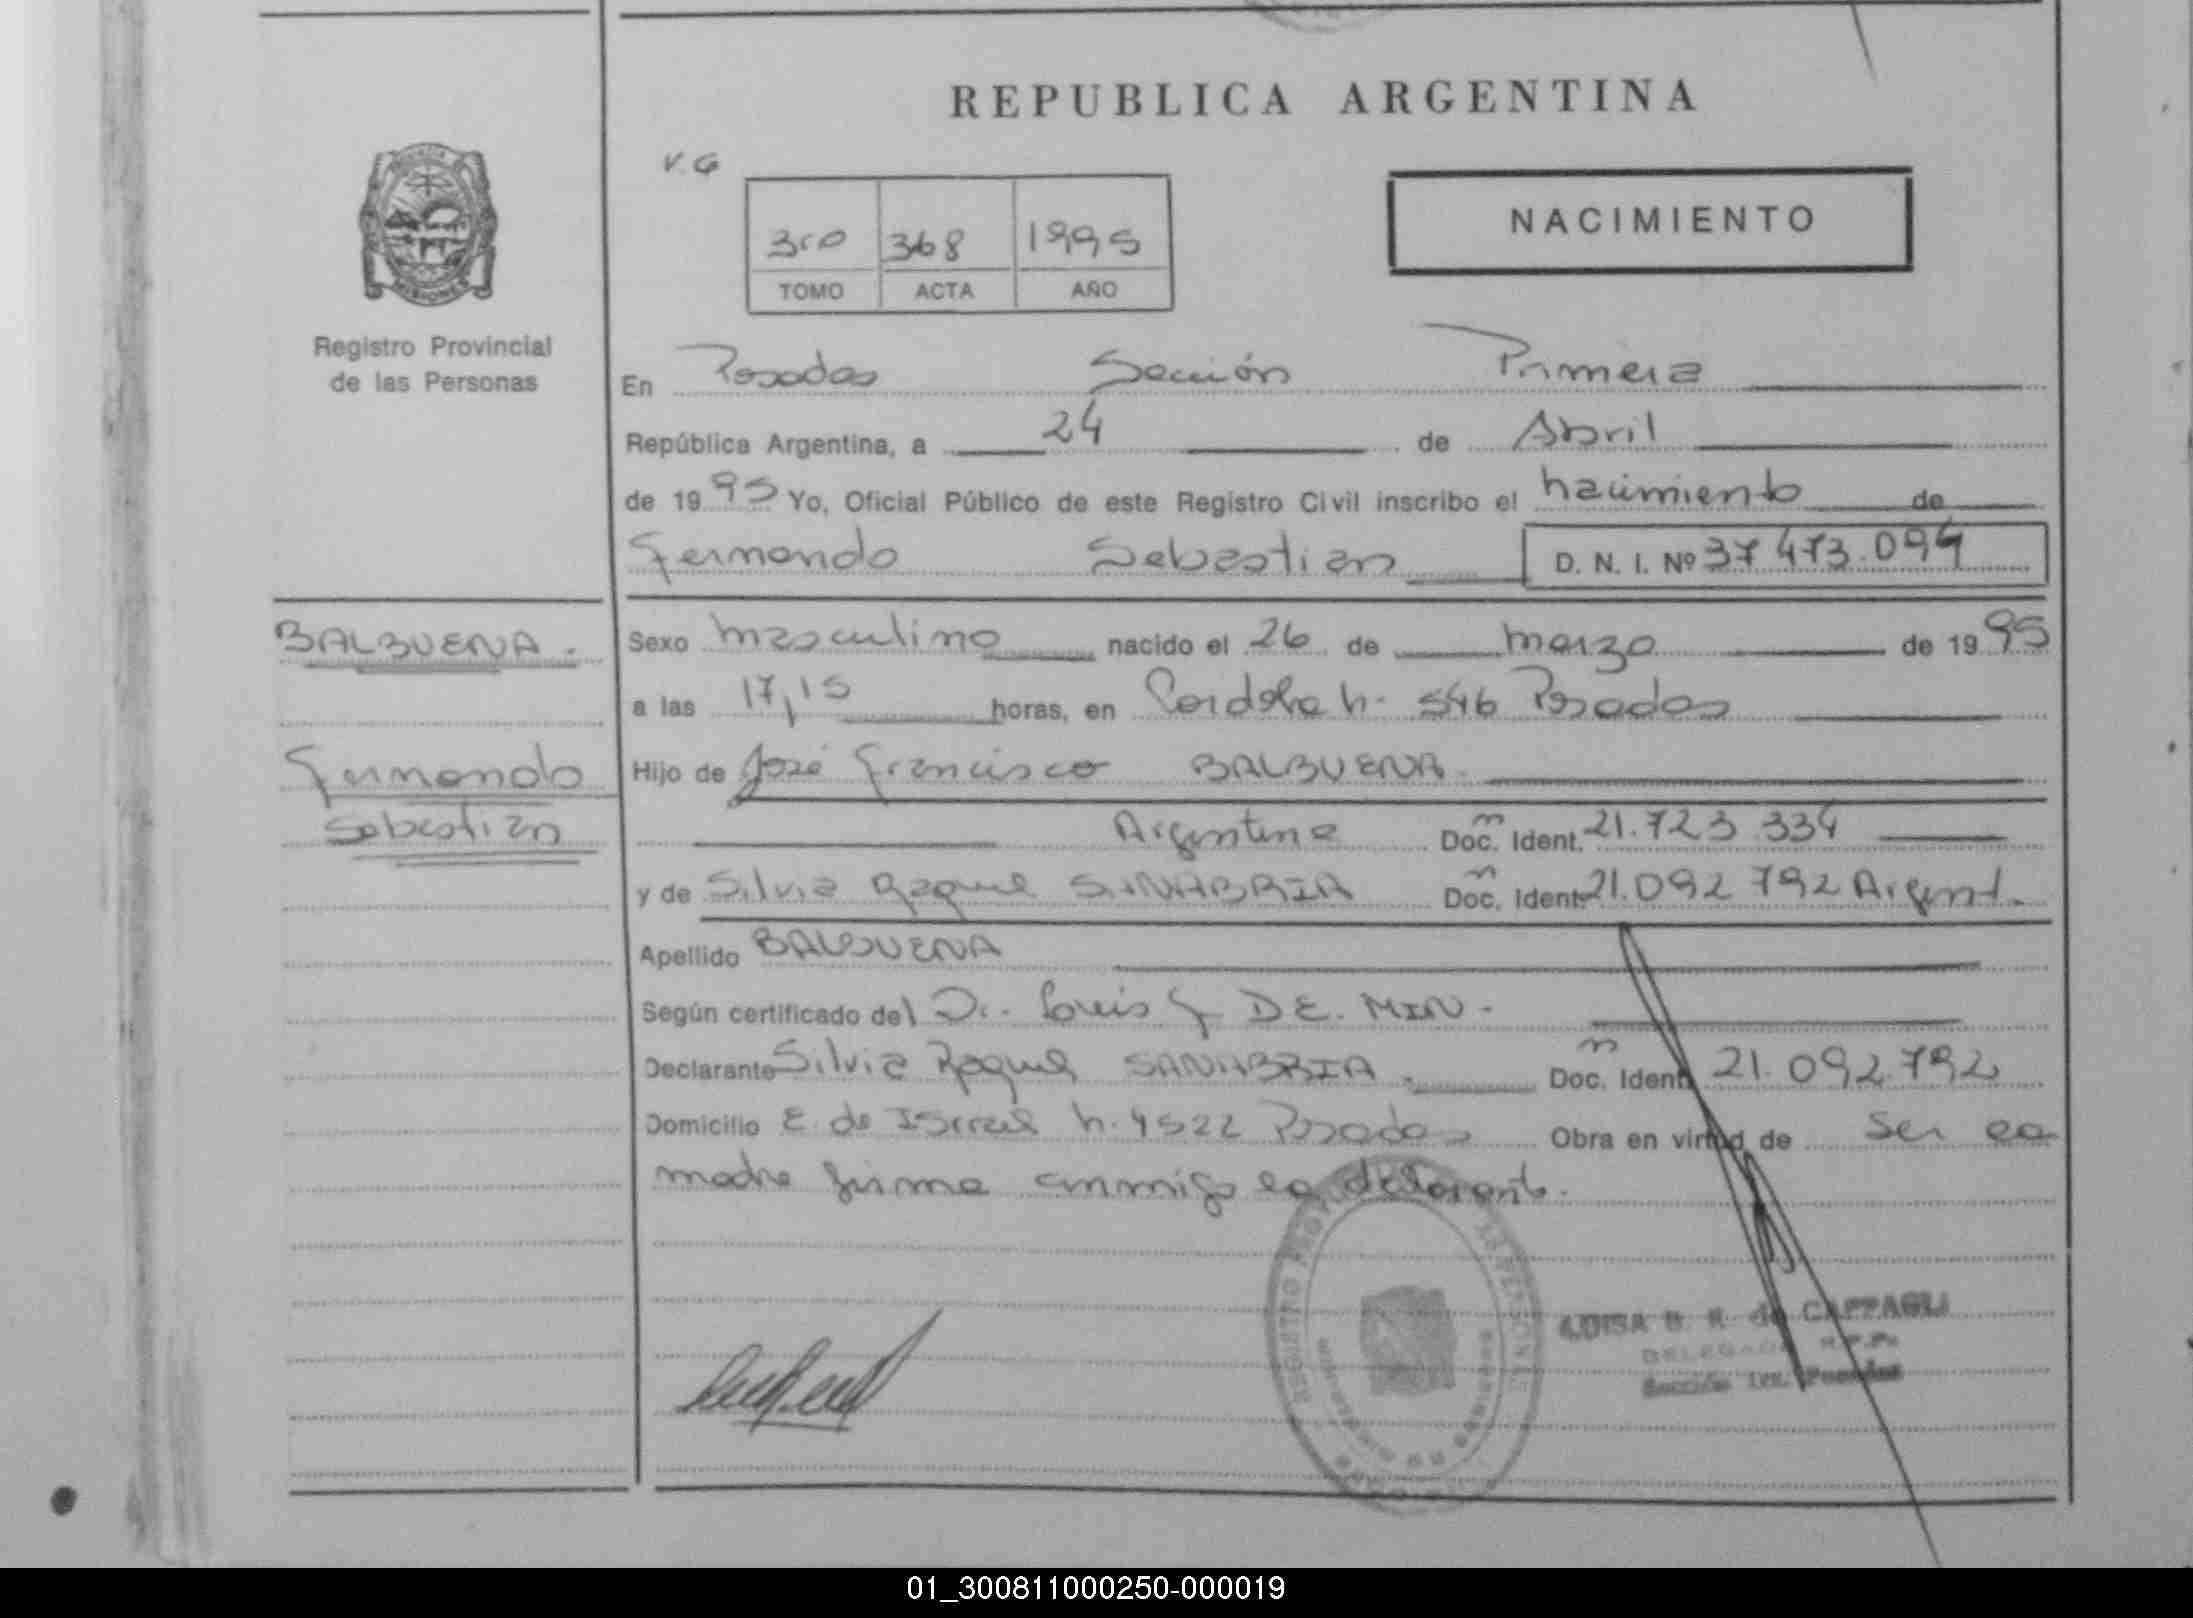 REPUBLICA ARGENTINA
V.G
NACIMIENTO
3ro 368 1995
TOMO ACTA AÑO
MISIONES
Registro Provincial
de las Personas
En Posadas Sección Primera
República Argentina, a 24 de Abril
de 1995 Yo, Oficial Público de este Registro Civil inscribo el nacimiento de
Fernando Sebastian D. N. I. Nº 37 473.094
BALBUENA.
Fernando
Sebastian
Sexo masculino nacido el 26 de marzo de 1995
a las 17,15 horas, en Cordoba n. 546 Posadas
Hijo de José Francisco BALBUENA
Argentino Doc. Ident. 21.723.334
y de Silvia Raquel SANABRIA Doc. Ident. 21.092 792 Argent.
Apellido BALBUENA
Según certificado del Dr. Luis DE. MIN.
Declarante Silvia Raquel SANABRIA. Doc. Ident. 21.092.792
Domicilio E. de Israel n. 4522 Posadas Obra en virtud de ser la
madre firma conmigo la declarante.
LUISA de CAPPAGLI
DELEGADA R.P.P.
Sección 1ra. Posadas
01_300811000250-000019